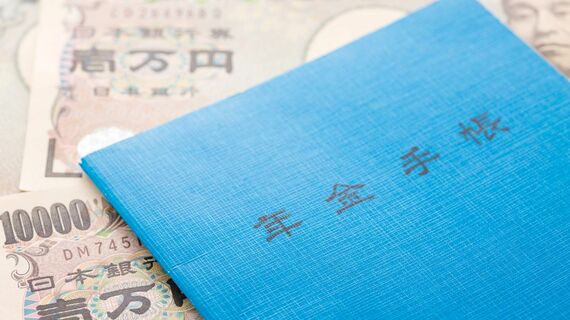 日本銀行券
壱万円
日本銀行
年金手帳
10000
日本銀
壱万円